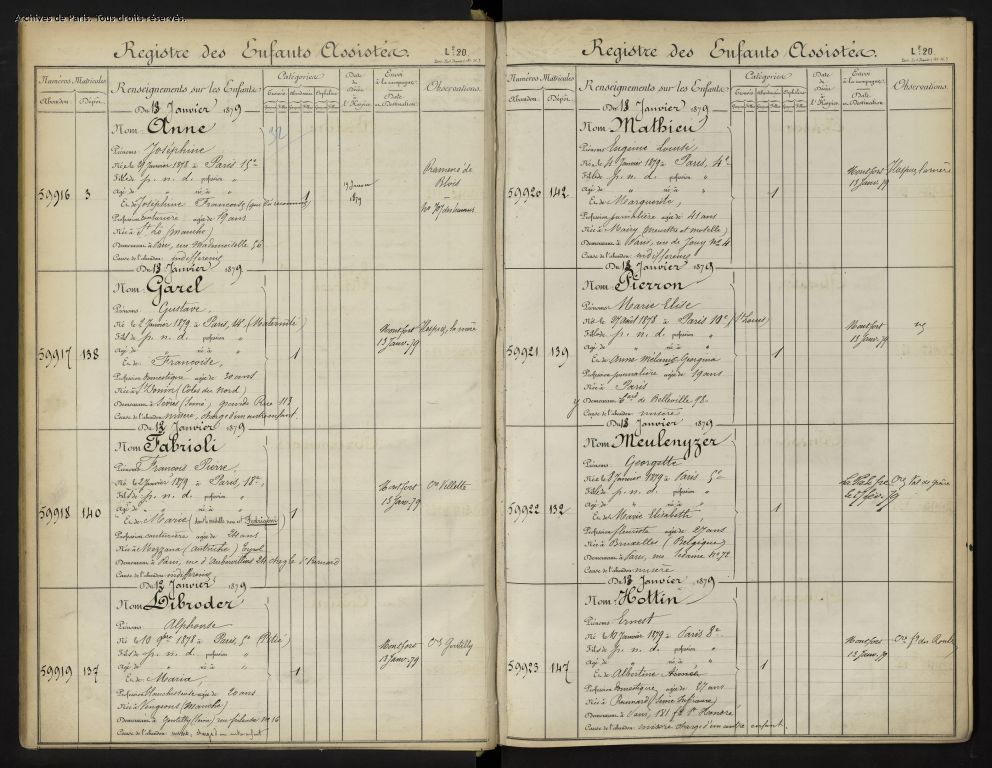 Archives de Paris. Tous droits réservés.
Registre des Enfants Assistés.
Lre 20.
Numéros Matricules
Abandon. Dépôt.
Renseignements sur les Enfants
Catégories
Trouvés Abandonnés Orphelins
Date du Décès à l'Hospice
Envoi à la campagne
Date Destination
Observations.
Du 13 Janvier 1879
59916 3
Nom: Anne
Prénoms: Joséphine
Née le 29 Janvier 1878 à Paris 15e
Fille de p. n. d. profession "
Agé de " né à "
Et de Joséphine Françoise
Profession couturière âgée de 19 ans
Née à St Lô (Manche)
Demeurant à Paris, rue Mademoiselle 56
Cause de l'abandon: indifférence
1
13 Janvier 1879
Ramenée de Blois
Du 13 Janvier 1879
59917 138
Nom: Garel
Prénoms: Gustave,
Né le 2 Janvier 1879 à Paris, 14e (Maternité)
Fils de p. n. d. profession "
Agé de " né à "
Et de Françoise,
Profession domestique âgée de 30 ans
Née à St Donan (Côtes du Nord)
Demeurant à Sèvres (Seine), grande Rue 113
Cause de l'abandon: misère, charge d'un autre enfant.
1
Montfort
13 Janv. 79
Du 13 Janvier 1879
59918 140
Nom: Fabrioli
Prénoms: François Pierre,
Né le Janvier 1879 à Paris, 18e,
Fils de p. n. d. profession "
Et de Marie
Profession couturière âgée de 24 ans
Née à Mezzana (Autriche) Tyrol
Demeurant à Paris, rue d'Aubervilliers 24, angle St Bernard
Cause de l'abandon: indifférence
1
Montfort
13 Janv. 79
Villette
Du 13 Janvier 1879
59919 137
Nom: Libroder
Prénoms: Alphonse
Né le 10 9bre 1878 à Paris, 5e (Pitié)
Fils de p. n. d. profession "
Agé de " né à "
Et de Maria,
Profession blanchisseuse âgée de 20 ans
Née à Vengeons (Manche)
Demeurant à Gentilly (Seine) rue No 16
Cause de l'abandon: misère, charge d'un autre enfant
1
Montfort
13 Janv. 79
Gentilly
Registre des Enfants Assistés.
Lre 20.
Numéros Matricules
Abandon. Dépôt.
Renseignements sur les Enfants
Catégories
Trouvés Abandonnés Orphelins
Date du Décès à l'Hospice
Envoi à la campagne
Date Destination
Observations.
Du 13 Janvier 1879
59920 142
Nom: Mathieu
Prénoms: Eugénie Louise
Née le 4 Janvier 1879 à Paris, 4e
Fille de p. n. d. profession "
Agé de " né à "
Et de Marguerite,
Profession journalière âgée de 41 ans
Née à Mairy (Meurthe et Moselle)
Demeurant à Paris, rue de Jouy No 4
Cause de l'abandon: indifférence
1
Montfort
13 Janv. 79
Du 13 Janvier 1879
59921 139
Nom: Pierron
Prénoms: Marie Elise
Née le 27 Août 1878 à Paris 10e (St Louis)
Fille de p. n. d. profession "
Agé de " né à "
Et de Anne Mélanie Georgina
Profession journalière âgée de 19 ans
Née à Paris
Demeurant Bard de Belleville 92
Cause de l'abandon: misère
1
Montfort
13 Janv. 79
Du 13 Janvier 1879
59922 132
Nom: Meulenyzer
Prénoms: Georgette
Née le 8 Janvier 1879 à Paris 5e
Fille de p. n. d. profession "
Agé de " né à "
Et de Marie Elisabeth,
Profession fleuriste âgée de 27 ans
Née à Bruxelles (Belgique)
Demeurant à Paris, rue No 72
Cause de l'abandon: misère
1
Du 13 Janvier 1879
59923 147
Nom: Hottin
Prénoms: Ernest
Né le 10 Janvier 1879 à Paris 8e
Fils de p. n. d. profession "
Agé de " né à "
Et de Albertine
Profession domestique âgée de 27 ans
Née à (Seine Inférieure)
Demeurant à Paris, 181 fg St Honoré
Cause de l'abandon: misère charge d'un autre enfant.
1
Montfort
13 Janv. 79